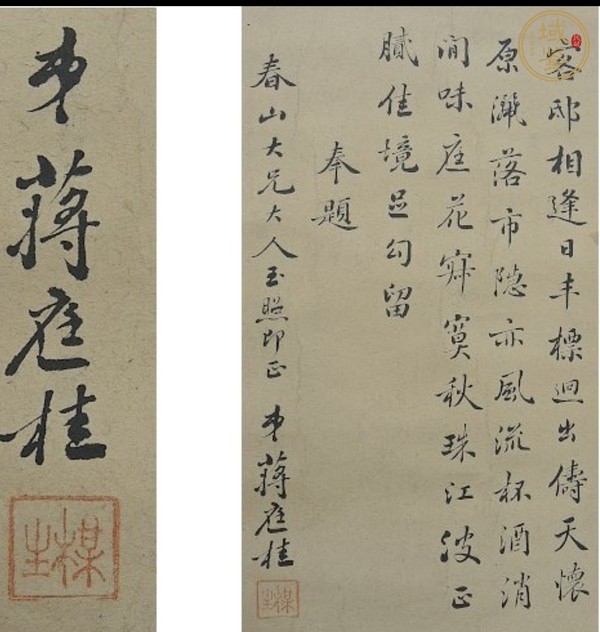 客邸相逢日丰標迴出儔天懷
原灑落市隱亦風流杯酒消
閒味庭花寂寞秋珠江波正
膩佳境足勾留
奉題
春山大兄大人玉照即正 弟蔣庭桂
楳生
弟蔣庭桂
楳生